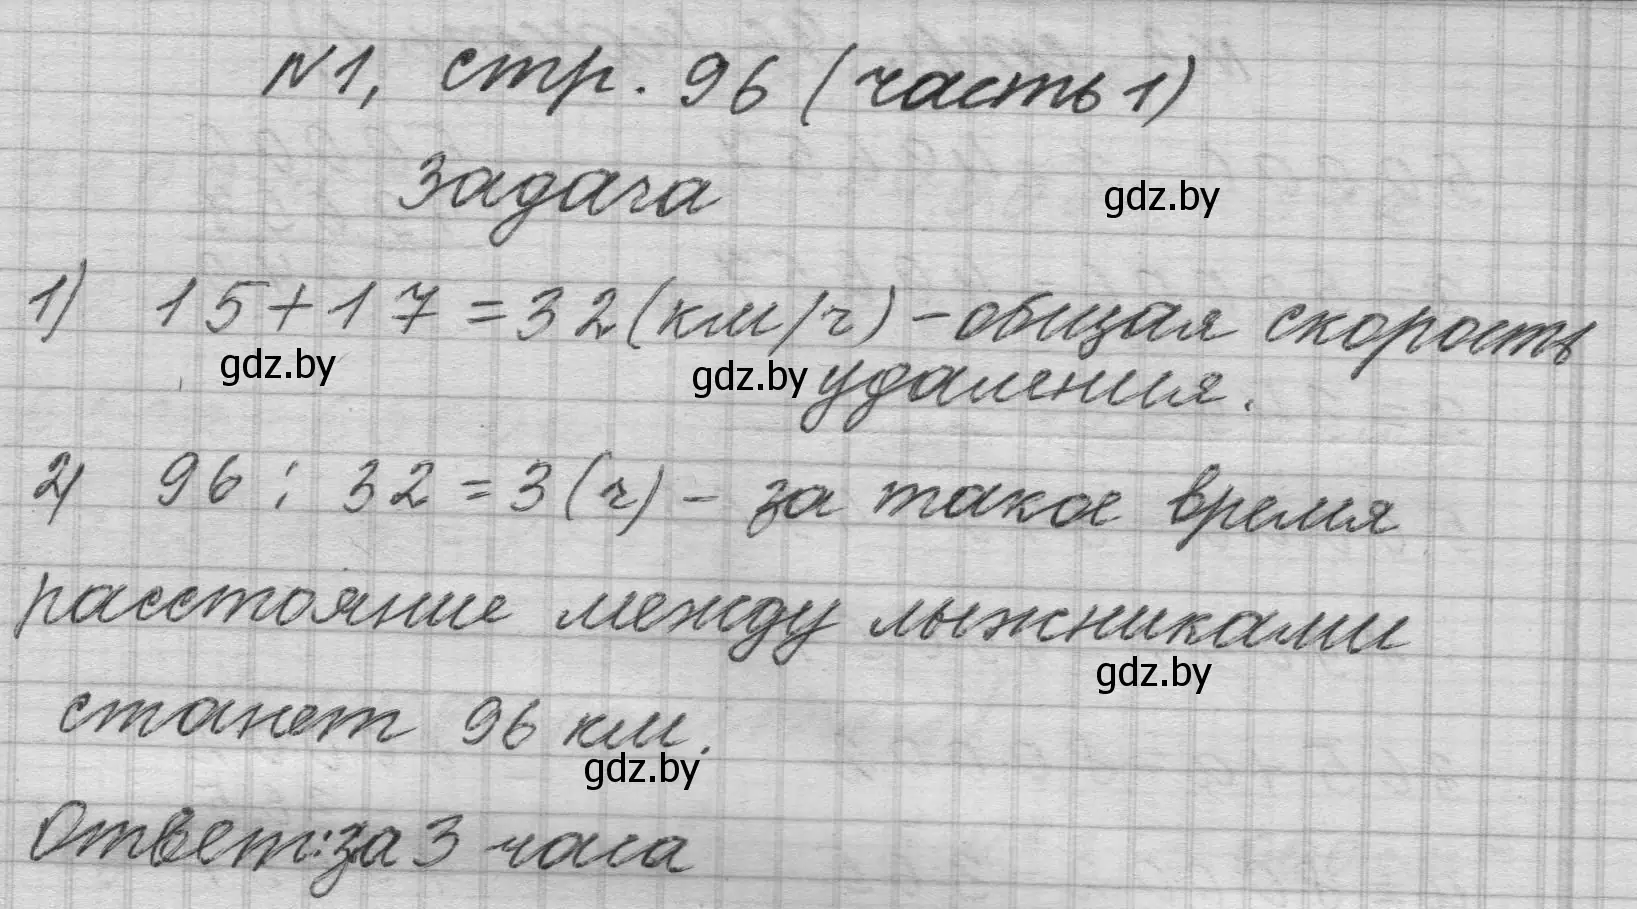 №1, стр. 96 (часть 1)
Задача
gdz.by
1) 15+17=32(км/ч) - общая скорость
gdz.by
gdz.by
удаления.
2) 96 : 32 = 3 (ч) - за такое время
расстояние между лыжниками
gdz.by
станет 96 км.
gdz.by
Ответ: за 3 часа